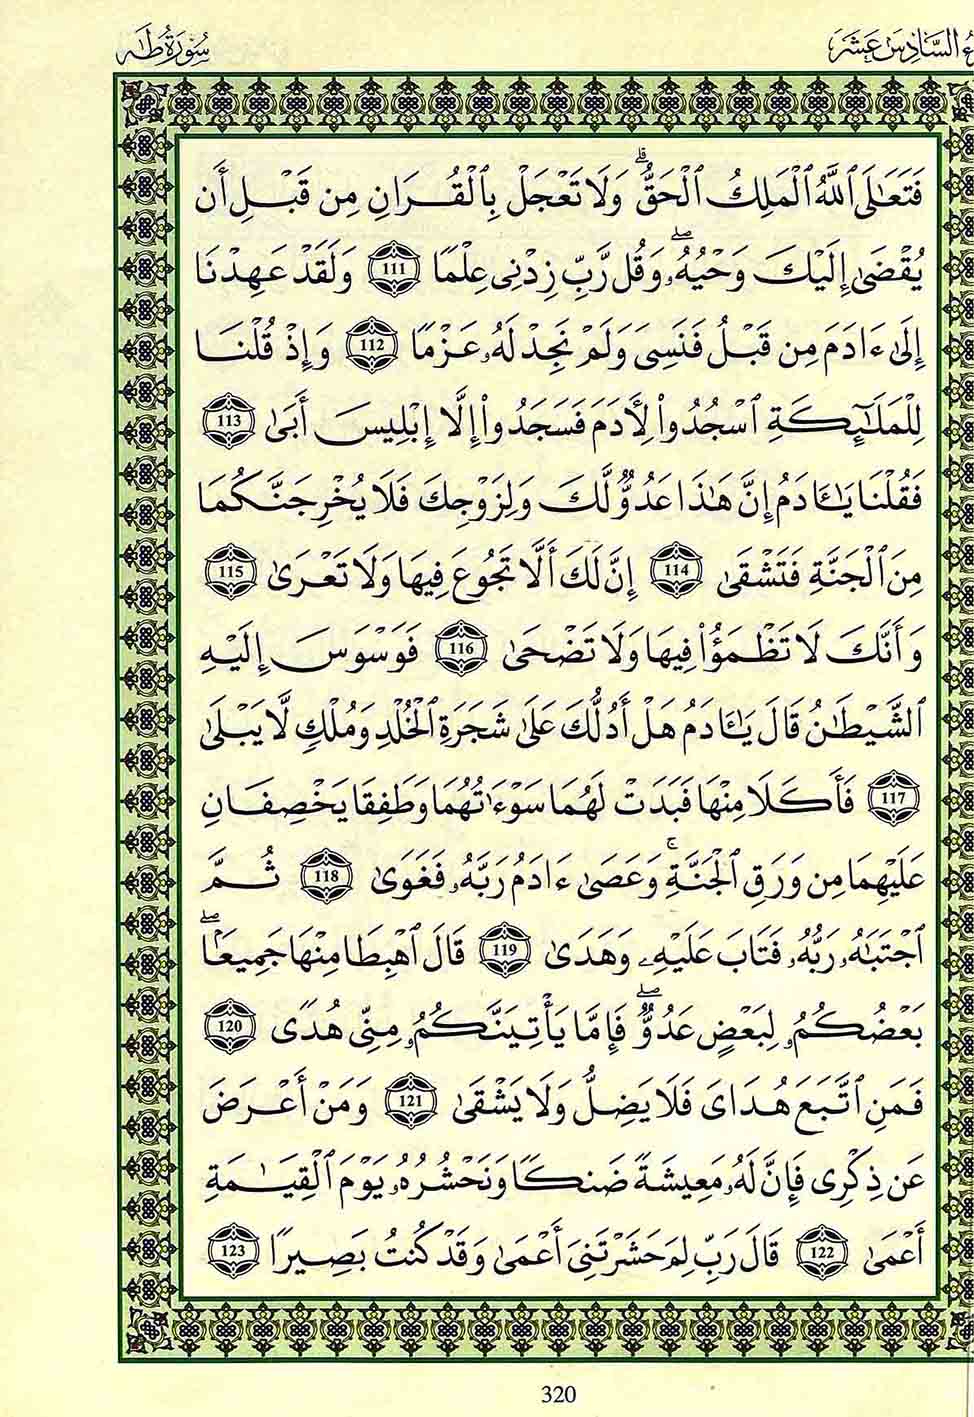 السَّادِسَ عَشَرَ سُورَةُ طَٰهٰ
فَتَعَٰلَى ٱللَّهُ ٱلْمَلِكُ ٱلْحَقُّۗ وَلَا تَعْجَلْ بِٱلْقُرَانِ مِن قَبْلِ أَن
يُقْضَىٰ إِلَيْكَ وَحْيُهُۥۖ وَقُل رَّبِّ زِدْنِى عِلْمًا 111 وَلَقَدْ عَهِدْنَا
إِلَىٰ ءَادَمَ مِن قَبْلُ فَنَسِىَ وَلَمْ نَجِدْ لَهُۥ عَزْمًا 112 وَإِذْ قُلْنَا
لِلْمَلَٰٓئِكَةِ ٱسْجُدُوا۟ لِأَدَمَ فَسَجَدُوا۟ إِلَّا إِبْلِيسَ أَبَىٰ 113
فَقُلْنَا يَٰـَٔادَمُ إِنَّ هَٰذَا عَدُوٌّ لَّكَ وَلِزَوْجِكَ فَلَا يُخْرِجَنَّكُمَا
مِنَ ٱلْجَنَّةِ فَتَشْقَىٰ 114 إِنَّ لَكَ أَلَّا تَجُوعَ فِيهَا وَلَا تَعْرَىٰ 115
وَأَنَّكَ لَا تَظْمَؤُا۟ فِيهَا وَلَا تَضْحَىٰ 116 فَوَسْوَسَ إِلَيْهِ
ٱلشَّيْطَٰنُ قَالَ يَٰـَٔادَمُ هَلْ أَدُلُّكَ عَلَىٰ شَجَرَةِ ٱلْخُلْدِ وَمُلْكٍ لَّا يَبْلَىٰ
117 فَأَكَلَا مِنْهَا فَبَدَتْ لَهُمَا سَوْءَٰتُهُمَا وَطَفِقَا يَخْصِفَانِ
عَلَيْهِمَا مِن وَرَقِ ٱلْجَنَّةِۚ وَعَصَىٰ ءَادَمُ رَبَّهُۥ فَغَوَىٰ 118 ثُمَّ
ٱجْتَبَٰهُۥ رَبُّهُۥ فَتَابَ عَلَيْهِۦ وَهَدَىٰ 119 قَالَ ٱهْبِطَا مِنْهَا جَمِيعًاۖ
بَعْضُكُمُۥ لِبَعْضٍ عَدُوٌّۖ فَإِمَّا يَأْتِيَنَّكُمُۥ مِنِّى هُدًى 120
فَمَنِ ٱتَّبَعَ هُدَاىَ فَلَا يَضِلُّ وَلَا يَشْقَىٰ 121 وَمَنْ أَعْرَضَ
عَن ذِكْرِى فَإِنَّ لَهُۥ مَعِيشَةً ضَنكًا وَنَحْشُرُهُۥ يَوْمَ ٱلْقِيَٰمَةِ
أَعْمَىٰ 122 قَالَ رَبِّ لِمَ حَشَرْتَنِىَ أَعْمَىٰ وَقَدْ كُنتُ بَصِيرًا 123
320